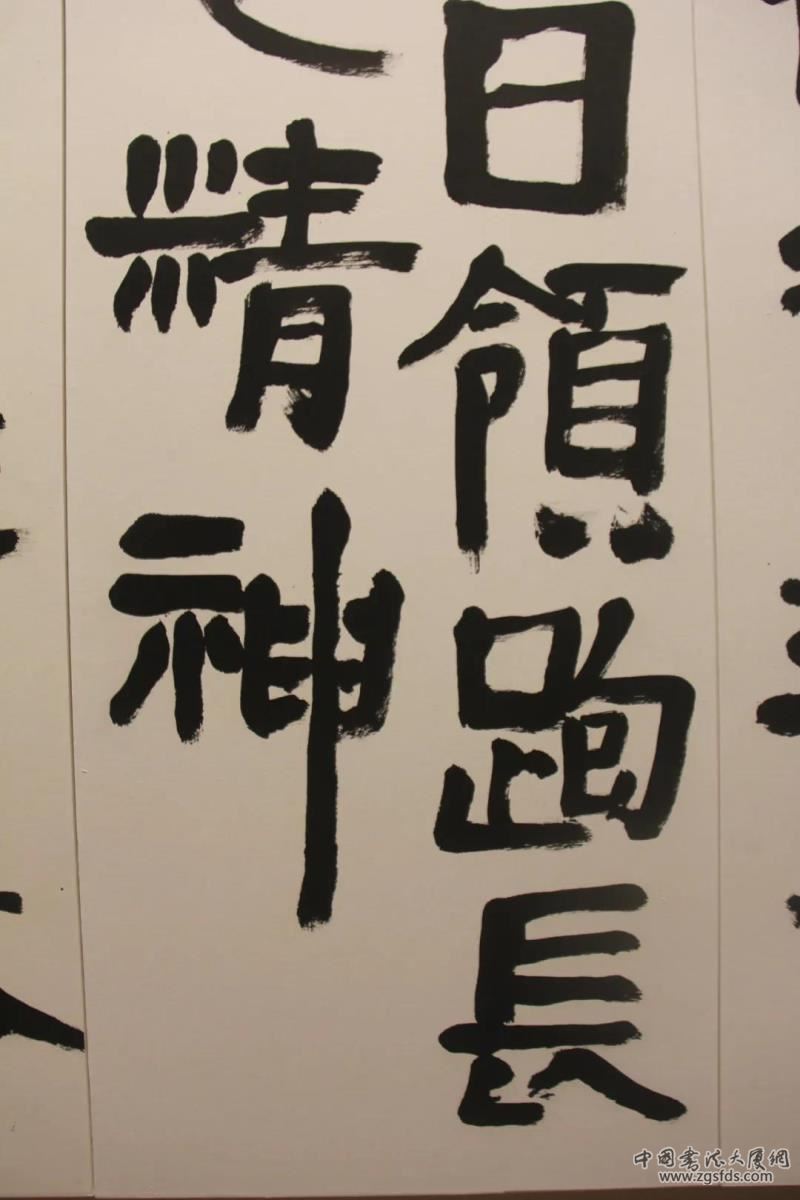 日領跑長
精神
中國書法大廈網
www.zgsfds.com